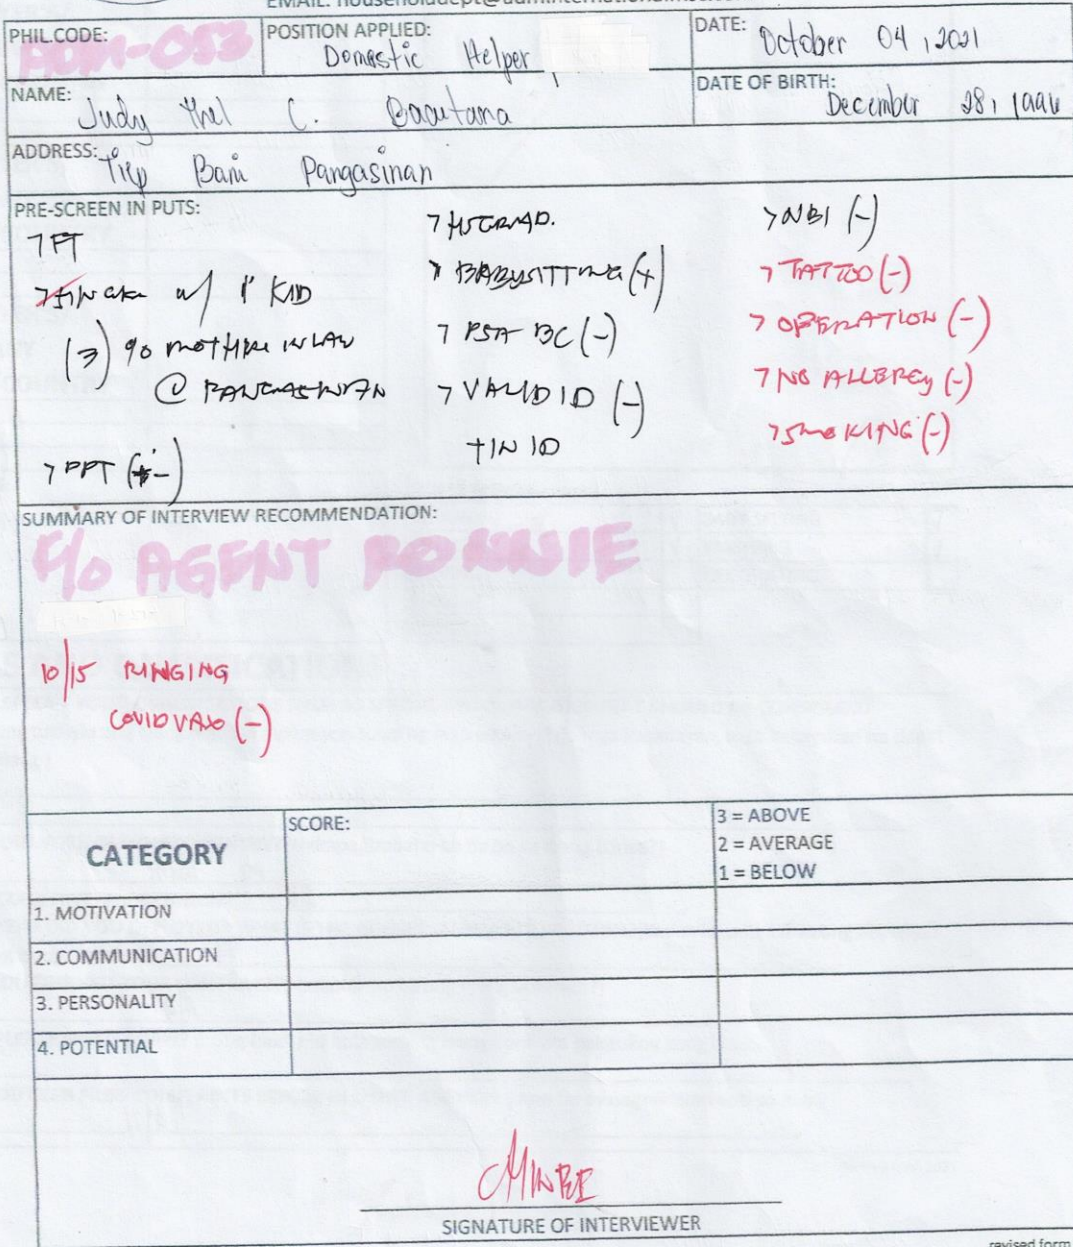 PHIL.CODE:
ADM-053
POSITION APPLIED:
Domestic Helper
DATE: October 04, 2021
NAME: Judy C.
DATE OF BIRTH:
December 28, 1996
ADDRESS: Tiep Bani Pangasinan
PRE-SCREEN IN PUTS:
> FT
w/ 1 KID
(3) c/o MOTHER IN LAW
@ PANGASINAN
> PPT
> HS GRAD.
> BABYSITTING (+)
> PSA BC (-)
> VALID ID (-)
TIN ID
> NBI (-)
> TATTOO (-)
> OPERATION (-)
> NO ALLERGY (-)
> SMOKING (-)
SUMMARY OF INTERVIEW RECOMMENDATION:
C/O AGENT RONNIE
10/15 RINGING
COVID VAX (-)
CATEGORY
SCORE:
3 = ABOVE
2 = AVERAGE
1 = BELOW
1. MOTIVATION
2. COMMUNICATION
3. PERSONALITY
4. POTENTIAL
SIGNATURE OF INTERVIEWER
revised form